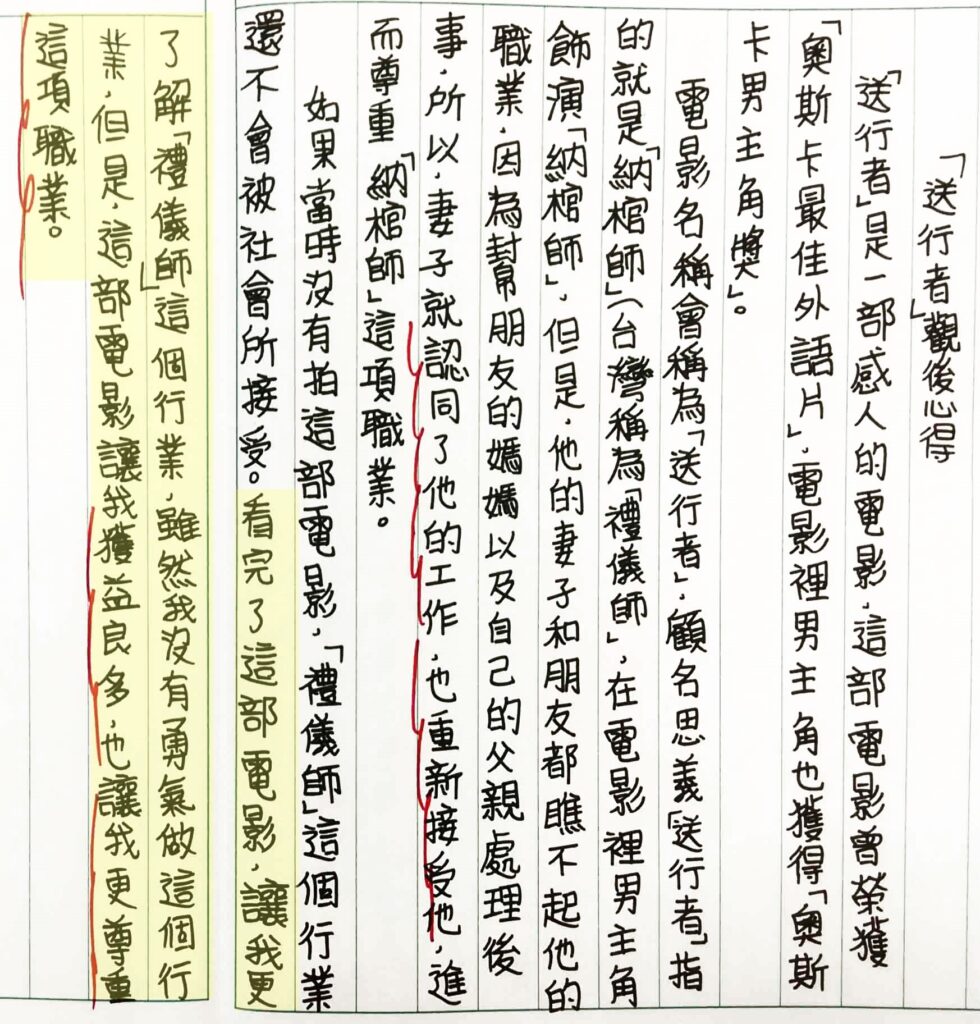 「送行者」觀後心得
「送行者」是一部感人的電影，這部電影曾榮獲
「奧斯卡最佳外語片」，電影裡男主角也獲得「奧斯
卡男主角獎」。
電影名稱會稱為「送行者」，顧名思義「送行者」指
的就是「納棺師」（台灣稱為「禮儀師」，在電影裡男主角
飾演「納棺師」，但是，他的妻子和朋友都瞧不起他的
職業，因為幫朋友的媽媽以及自己的父親處理後
事，所以，妻子就認同了他的工作，也重新接受他，進
而尊重「納棺師」這項職業。
如果當時沒有拍這部電影，「禮儀師」這個行業
還不會被社會所接受。看完了這部電影，讓我更
了解「禮儀師」這個行業，雖然我沒有勇氣做這個行
業，但是，這部電影讓我獲益良多，也讓我更尊重
這項職業。